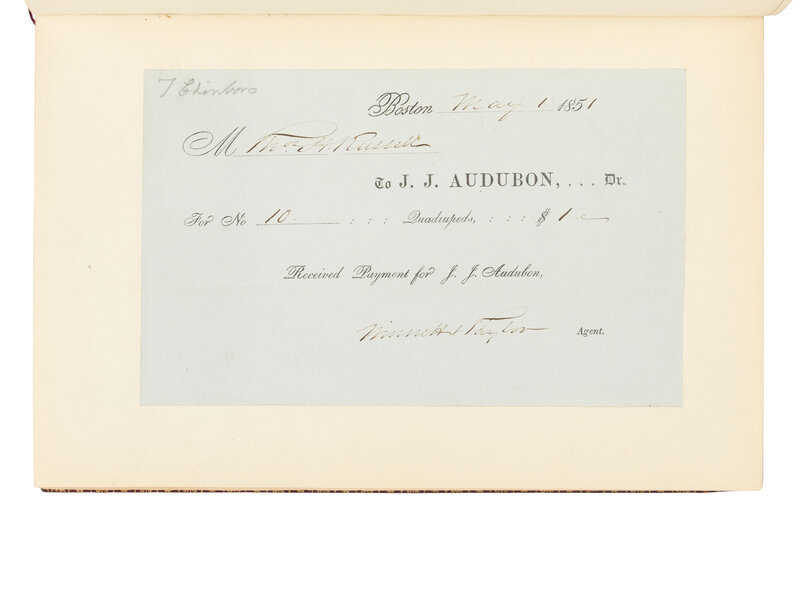 7 Edinboro
Boston May 1 1851
M Thos. H. Russell
To J. J. AUDUBON, . . . Dr.
For No 10. : : : Quadrupeds, : : : $ 1
Received Payment for J. J. Audubon,
Taylor Agent.